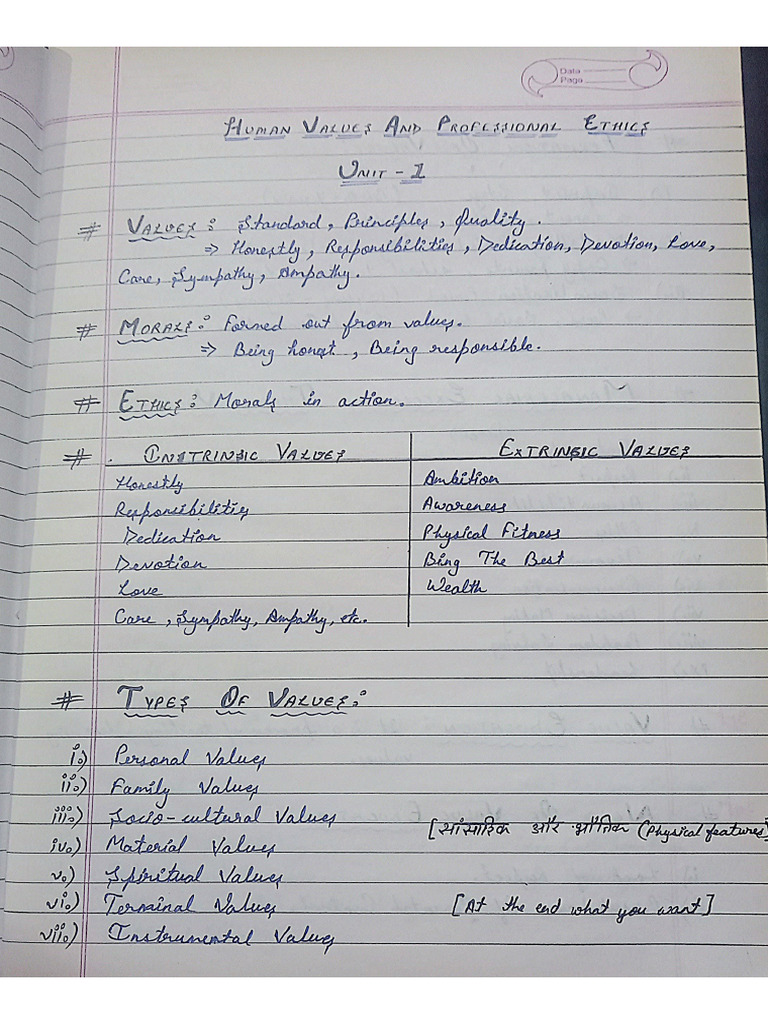 Date
Page
HUMAN VALUES AND PROFESSIONAL ETHICS
UNIT - 1
# VALUES : Standard, Principles, Quality.
⇒ Honestly, Responsibilities, Dedication, Devotion, Love,
Care, Sympathy, Ampathy.
# MORALS : Formed out from values.
⇒ Being honest, Being responsible.
# ETHICS : Morals in action.
# . INSTRINSIC VALUES EXTRINSIC VALUES
Honestly Ambition
Responsibilities Awareness
Dedication Physical Fitness
Devotion Bing The Best
Love Wealth
Care, Sympathy, Ampathy, etc.
# TYPES OF VALUES :
i.) Personal Values
ii.) Family Values
iii.) Socio-cultural Values
iv.) Material Values [सांसारिक और भौतिक (Physical features)]
v.) Spiritual Values
vi.) Terminal Values [At the end what you want]
vii.) Instrumental Values